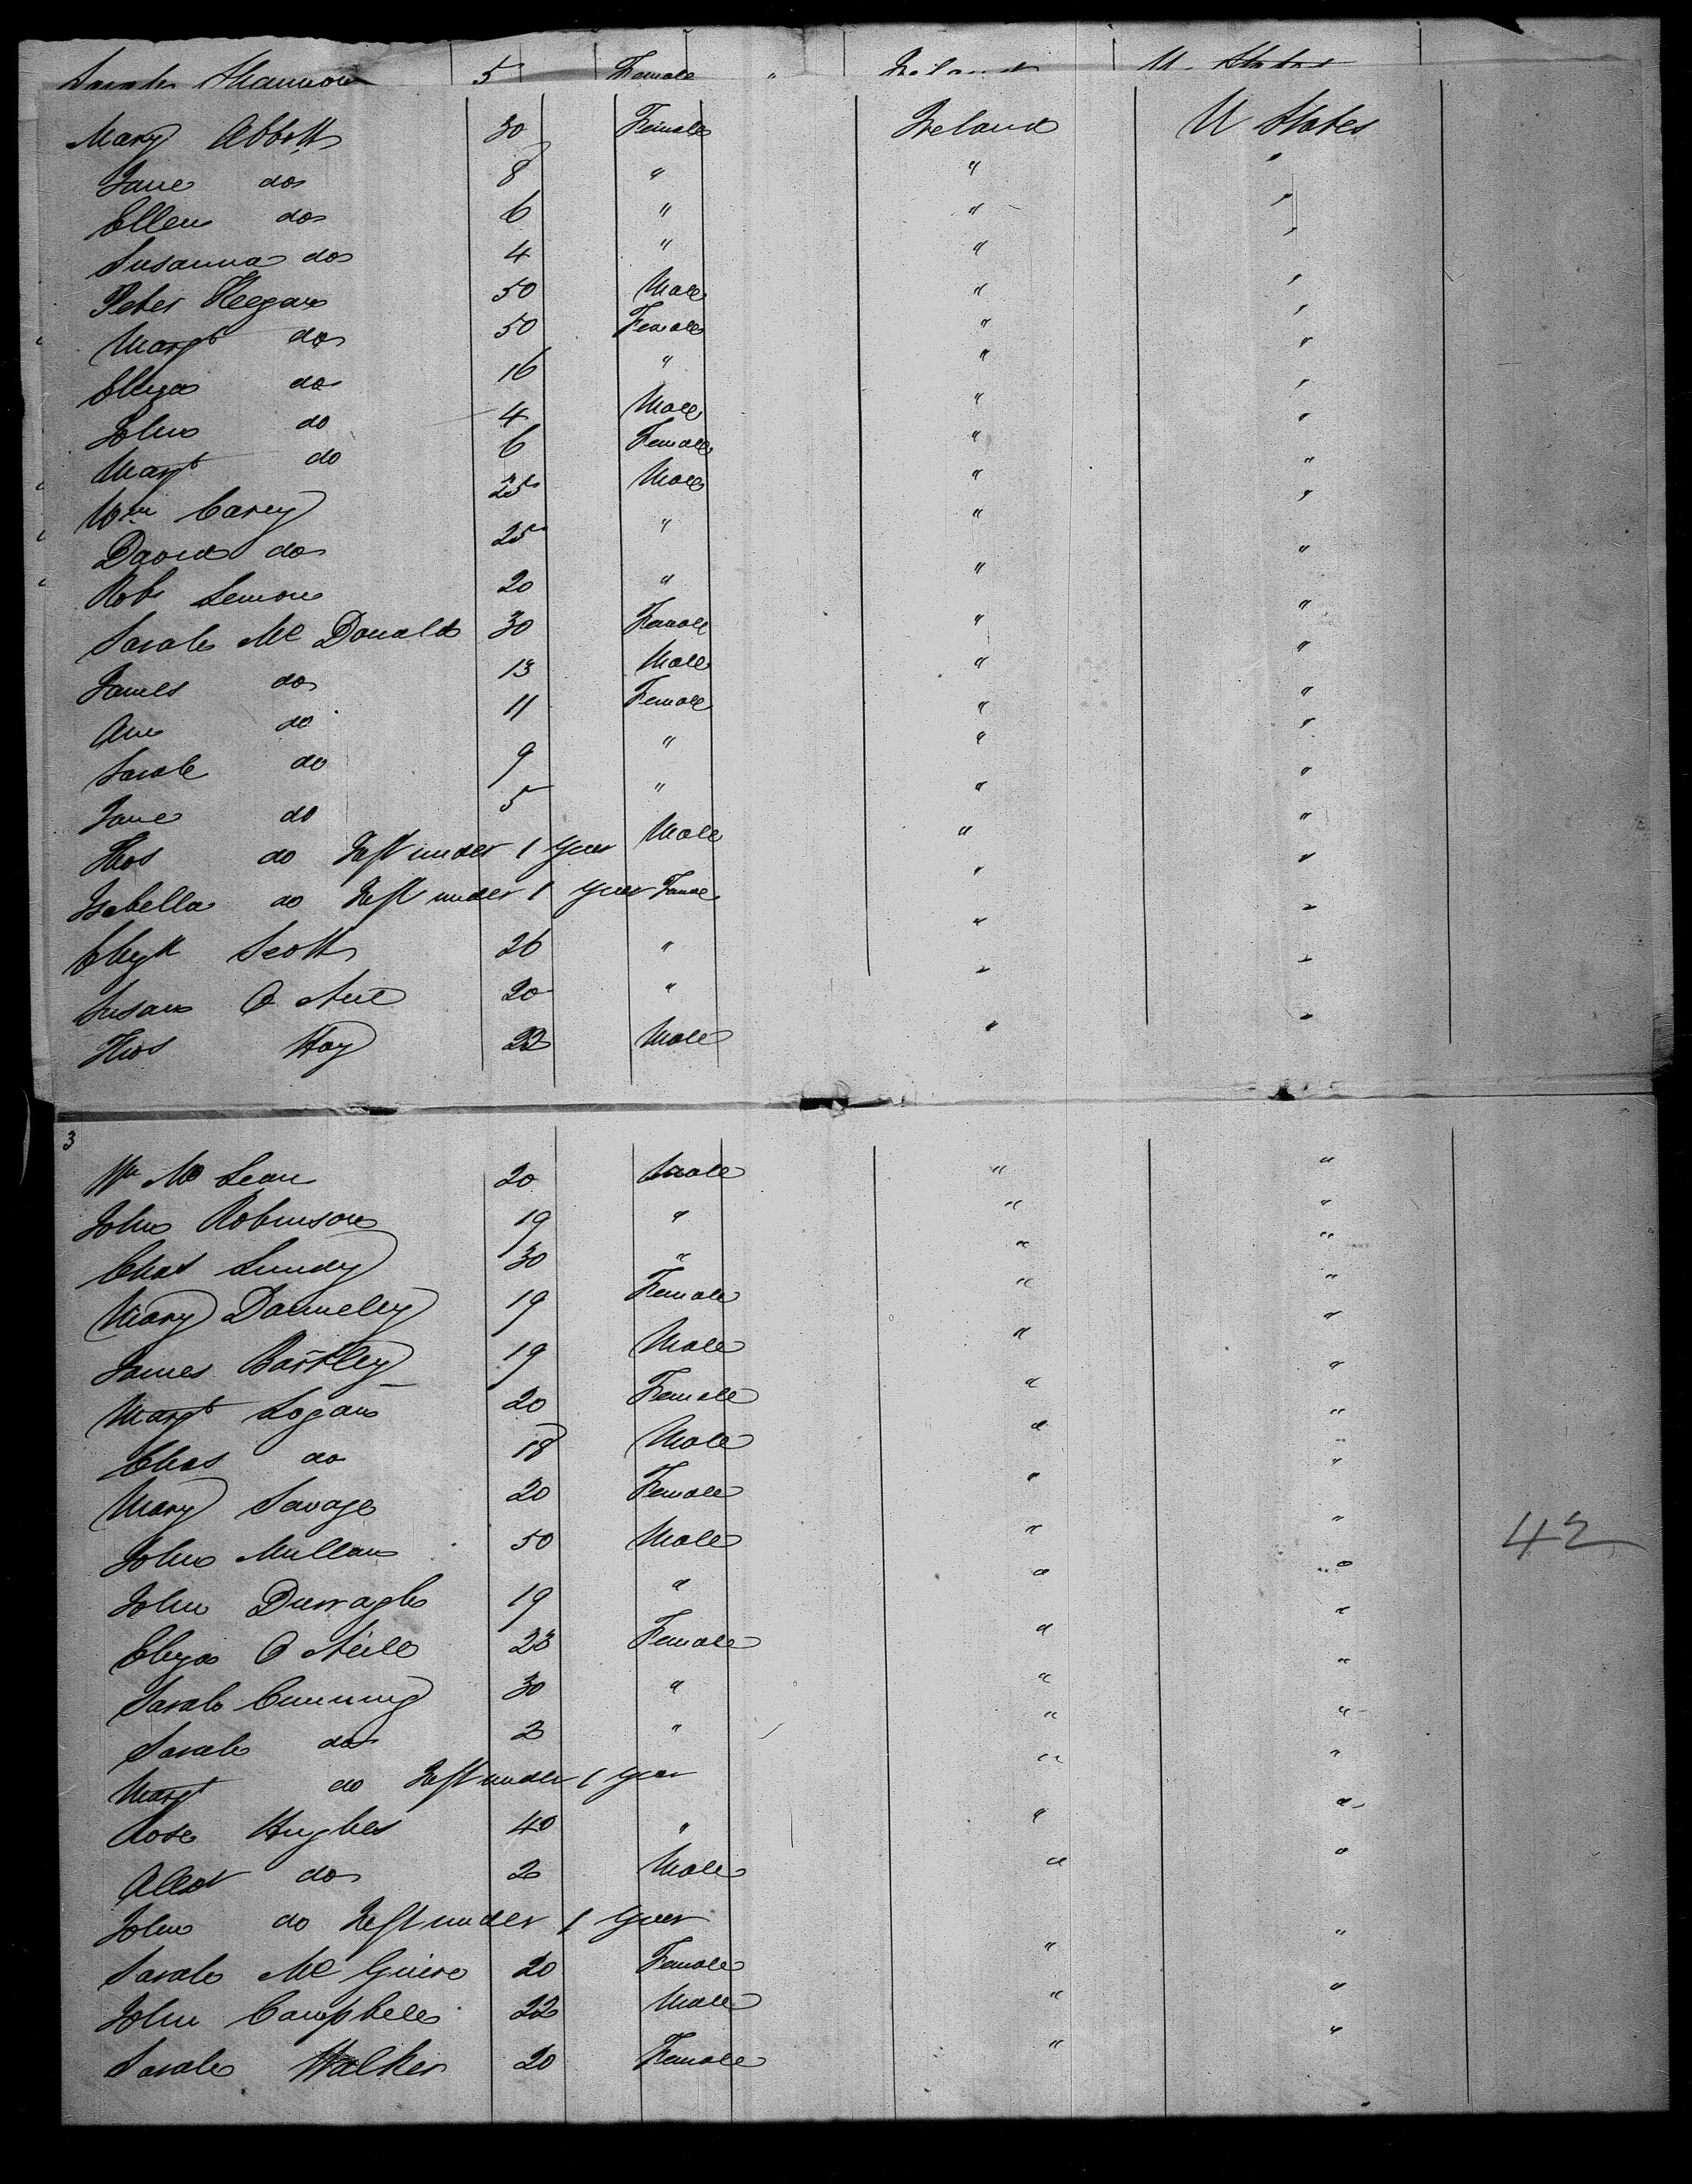 Sarah Shannon 5 Female " Ireland U States
Mary Abbott 30 Female Ireland U States
Jane do 8 " " "
Ellen do 6 " " "
Susanna do 4 " " "
Peter Keegan 50 Male " "
Margt do 50 Female " "
Eliza do 16 " " "
John do 4 Male " "
Margt do 6 Female " "
Wm Carey 25 Male " "
David do 25 " " "
Robt Lemon 20 " " "
Sarah Mc Donald 30 Female " "
James do 13 Male " "
Ann do 11 Female " "
Sarah do 9 " " "
Jane do 5 " " "
Thos do Inft under 1 year Male " "
Isabella do Inft under 1 year Female " "
Elizth Scott 26 " " "
Susan O Neil 20 " " "
Thos Hay 22 Male " "
3
Wm Mc Lean 20 Male " "
John Robinson 19 " " "
Chas Lundy 30 " " "
Mary Donnelly 19 Female " "
James Bartley 19 Male " "
Margt Logan 20 Female " "
Chas do 18 Male " "
Mary Savage 20 Female " "
John Mullan 50 Male " "
42
John Durragh 19 " " "
Eliza O Neill 23 Female " "
Sarah Cumming 30 " " "
Sarah do 2 " " "
Margt do Inft under 1 year " "
Rose Hughes 40 " " "
do 2 Male " "
John do Inft under 1 year
Sarah Mc Guire 20 Female " "
John Campbell 22 Male " "
Sarah Walker 20 Female " "